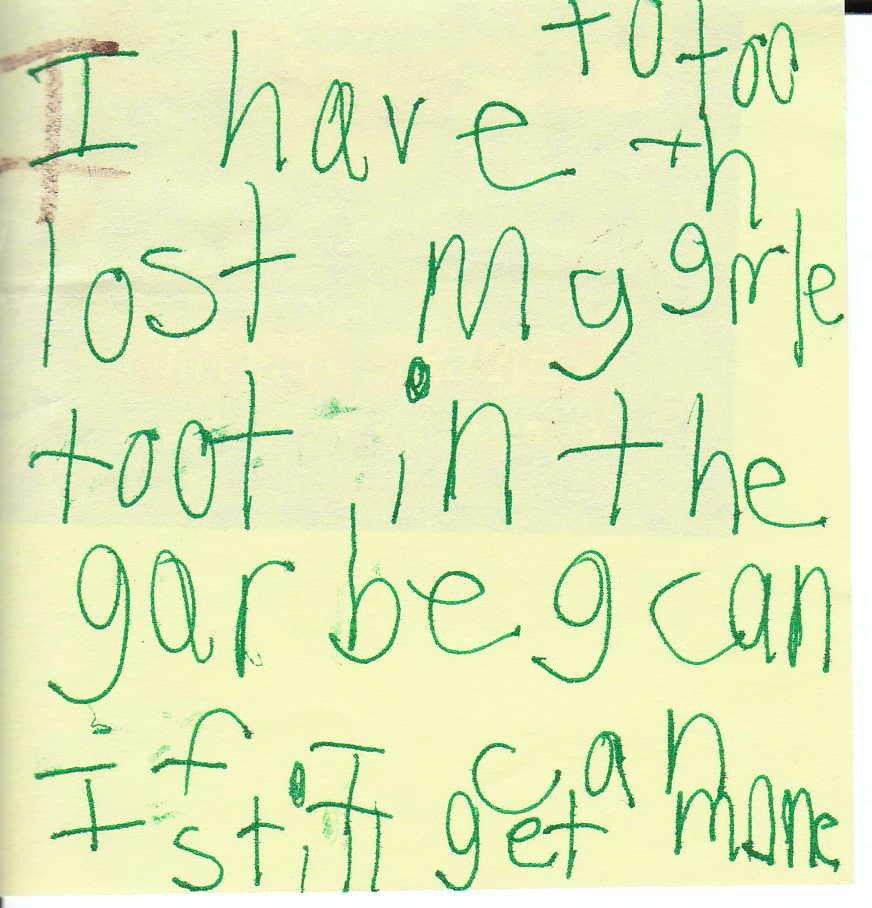 I have to too
th
lost my grle
toot in the
garbeg can
If I can
still get mone